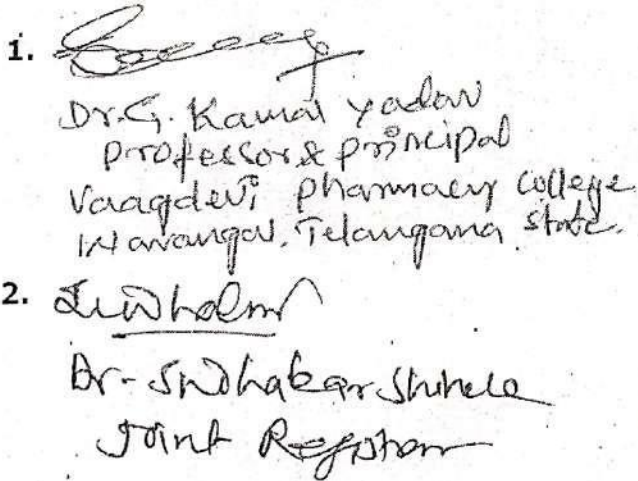 1.
Dr. G. Kamal Yadav
Professor & Principal
Vaagdevi Pharmacy College
Warangal, Telangana State.
2.
Dr. Sudhakar Shinde
Joint Registrar